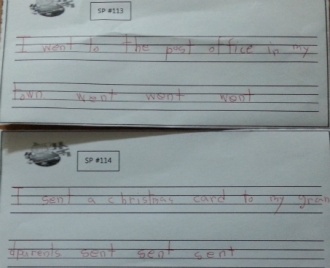 SP #113
I went to the post office in my
town went went went
SP #114
I sent a christmas card to my gran
dparents sent sent sent